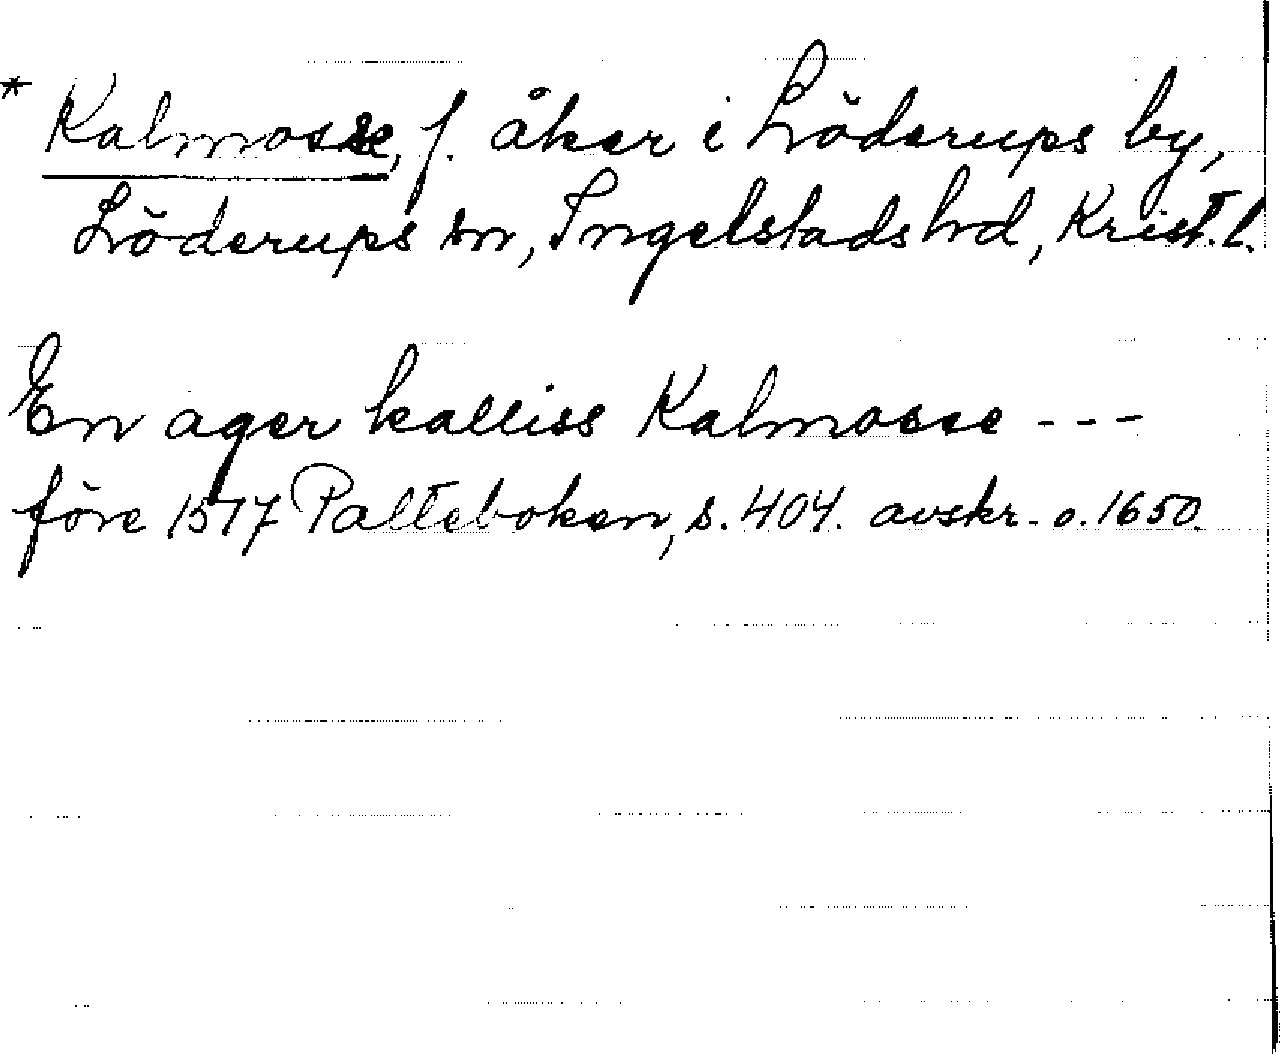 * Kalmosse, f. åker i Löderups by,
Löderups sn, Ingelstads hd, Krist. l.
En ager kalliss Kalmosse ---
före 1517 Palteboken, s. 404. avskr. o. 1650.